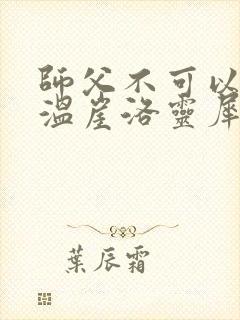 師父不可以
溫崖洛靈犀
葉辰霜